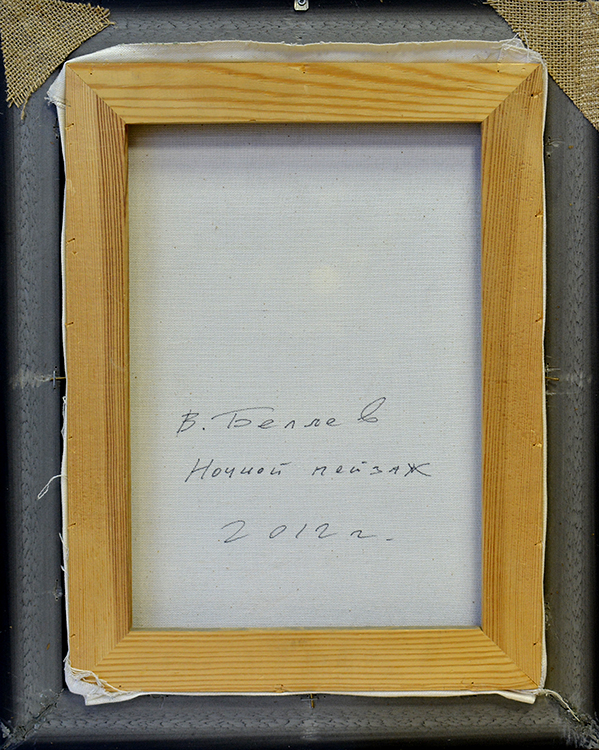 В. Беляев
Ночной пейзаж
2012 г.